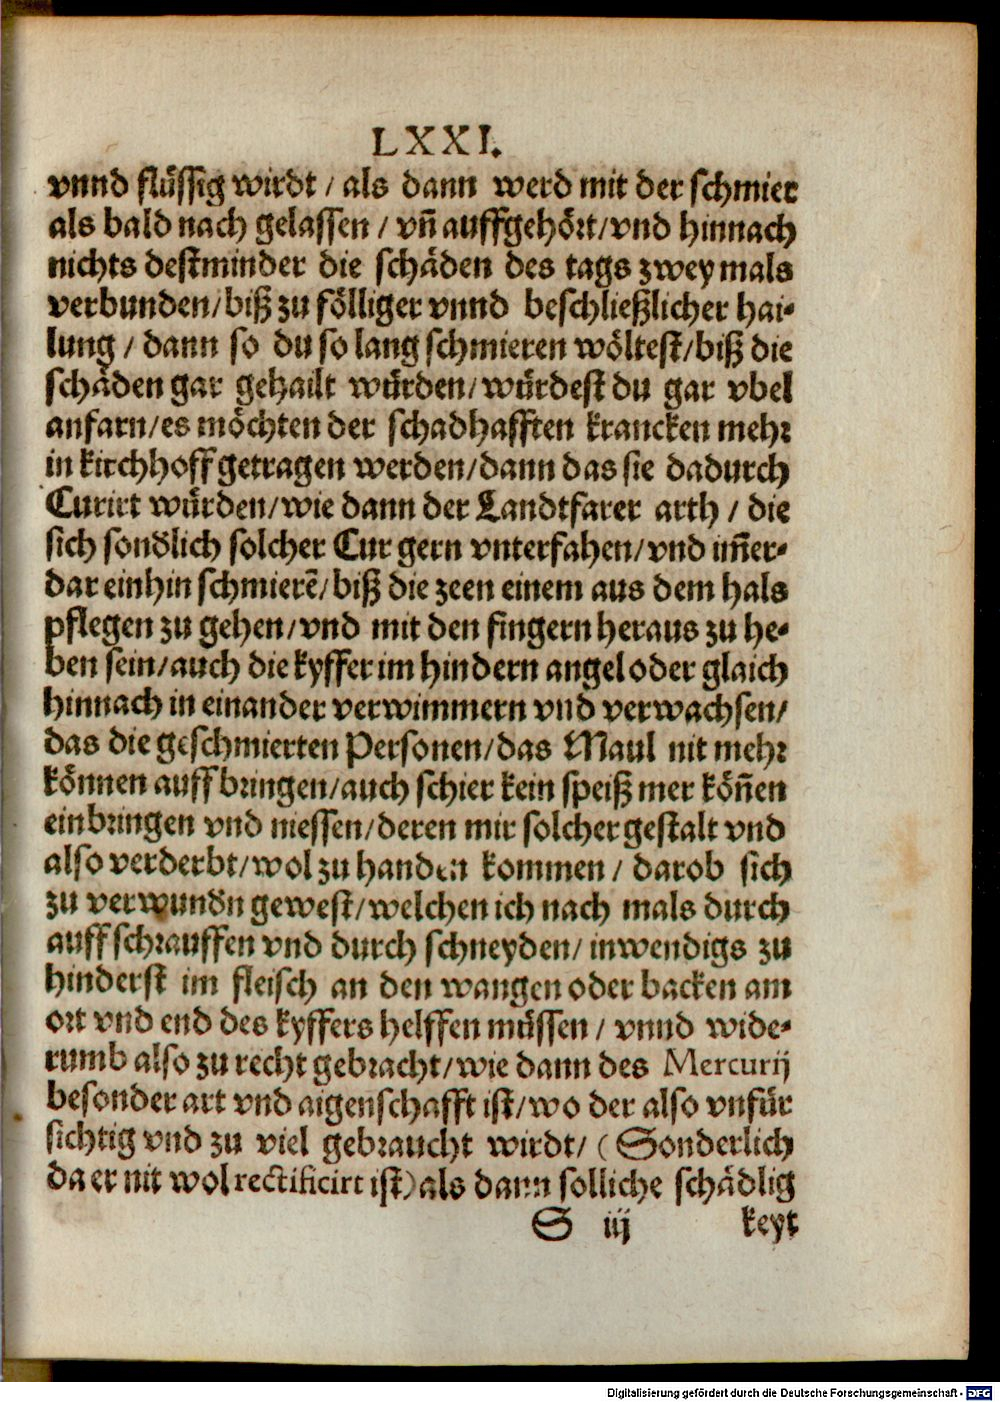 LXXI.
vnnd flüssig wirdt / als dann werd mit der schmier
als bald nach gelassen / vñ auffgehört/vnd hinnach
nichts destminder die schäden des tags zwey mals
verbunden/biß zu fölliger vnnd beschließlicher hai-
lung / dann so du so lang schmieren wöltest/biß die
schäden gar gehailt würden/würdest du gar vbel
anfarn/es möchten der schadhafften krancken mehr
in kirchhoff getragen werden/dann das sie dadurch
Curirt würden/wie dann der Landtfarer arth / die
sich sondlich solcher Cur gern vnterfahen/vnd im̃er-
dar einhin schmierẽ/biß die zeen einem aus dem hals
pflegen zu gehen/vnd mit den fingern heraus zu he-
ben sein/auch die kyffer im hindern angel oder glaich
hinnach in einander verwimmern vnd verwachsen/
das die geschmierten Personen/das Maul nit mehr
können auff bringen/auch schier kein speiß mer köñen
einbringen vnd niessen/deren mir solcher gestalt vnd
also verderbt/wol zu handen kommen / darob sich
zu verwundn gewest/welchen ich nach mals durch
auff schrauffen vnd durch schneyden/ inwendigs zu
hinderst im fleisch an den wangen oder backen am
ort vnd end des kyffers helffen müssen / vnnd wide-
rumb also zu recht gebracht/wie dann des Mercurij
besonder art vnd aigenschafft ist/wo der also vnfür
sichtig vnd zu viel gebraucht wirdt/ (Sonderlich
da er nit wol rectificirt ist) als dann solliche schädlig
S iij keyt
Digitalisierung gefördert durch die Deutsche Forschungsgemeinschaft - DFG